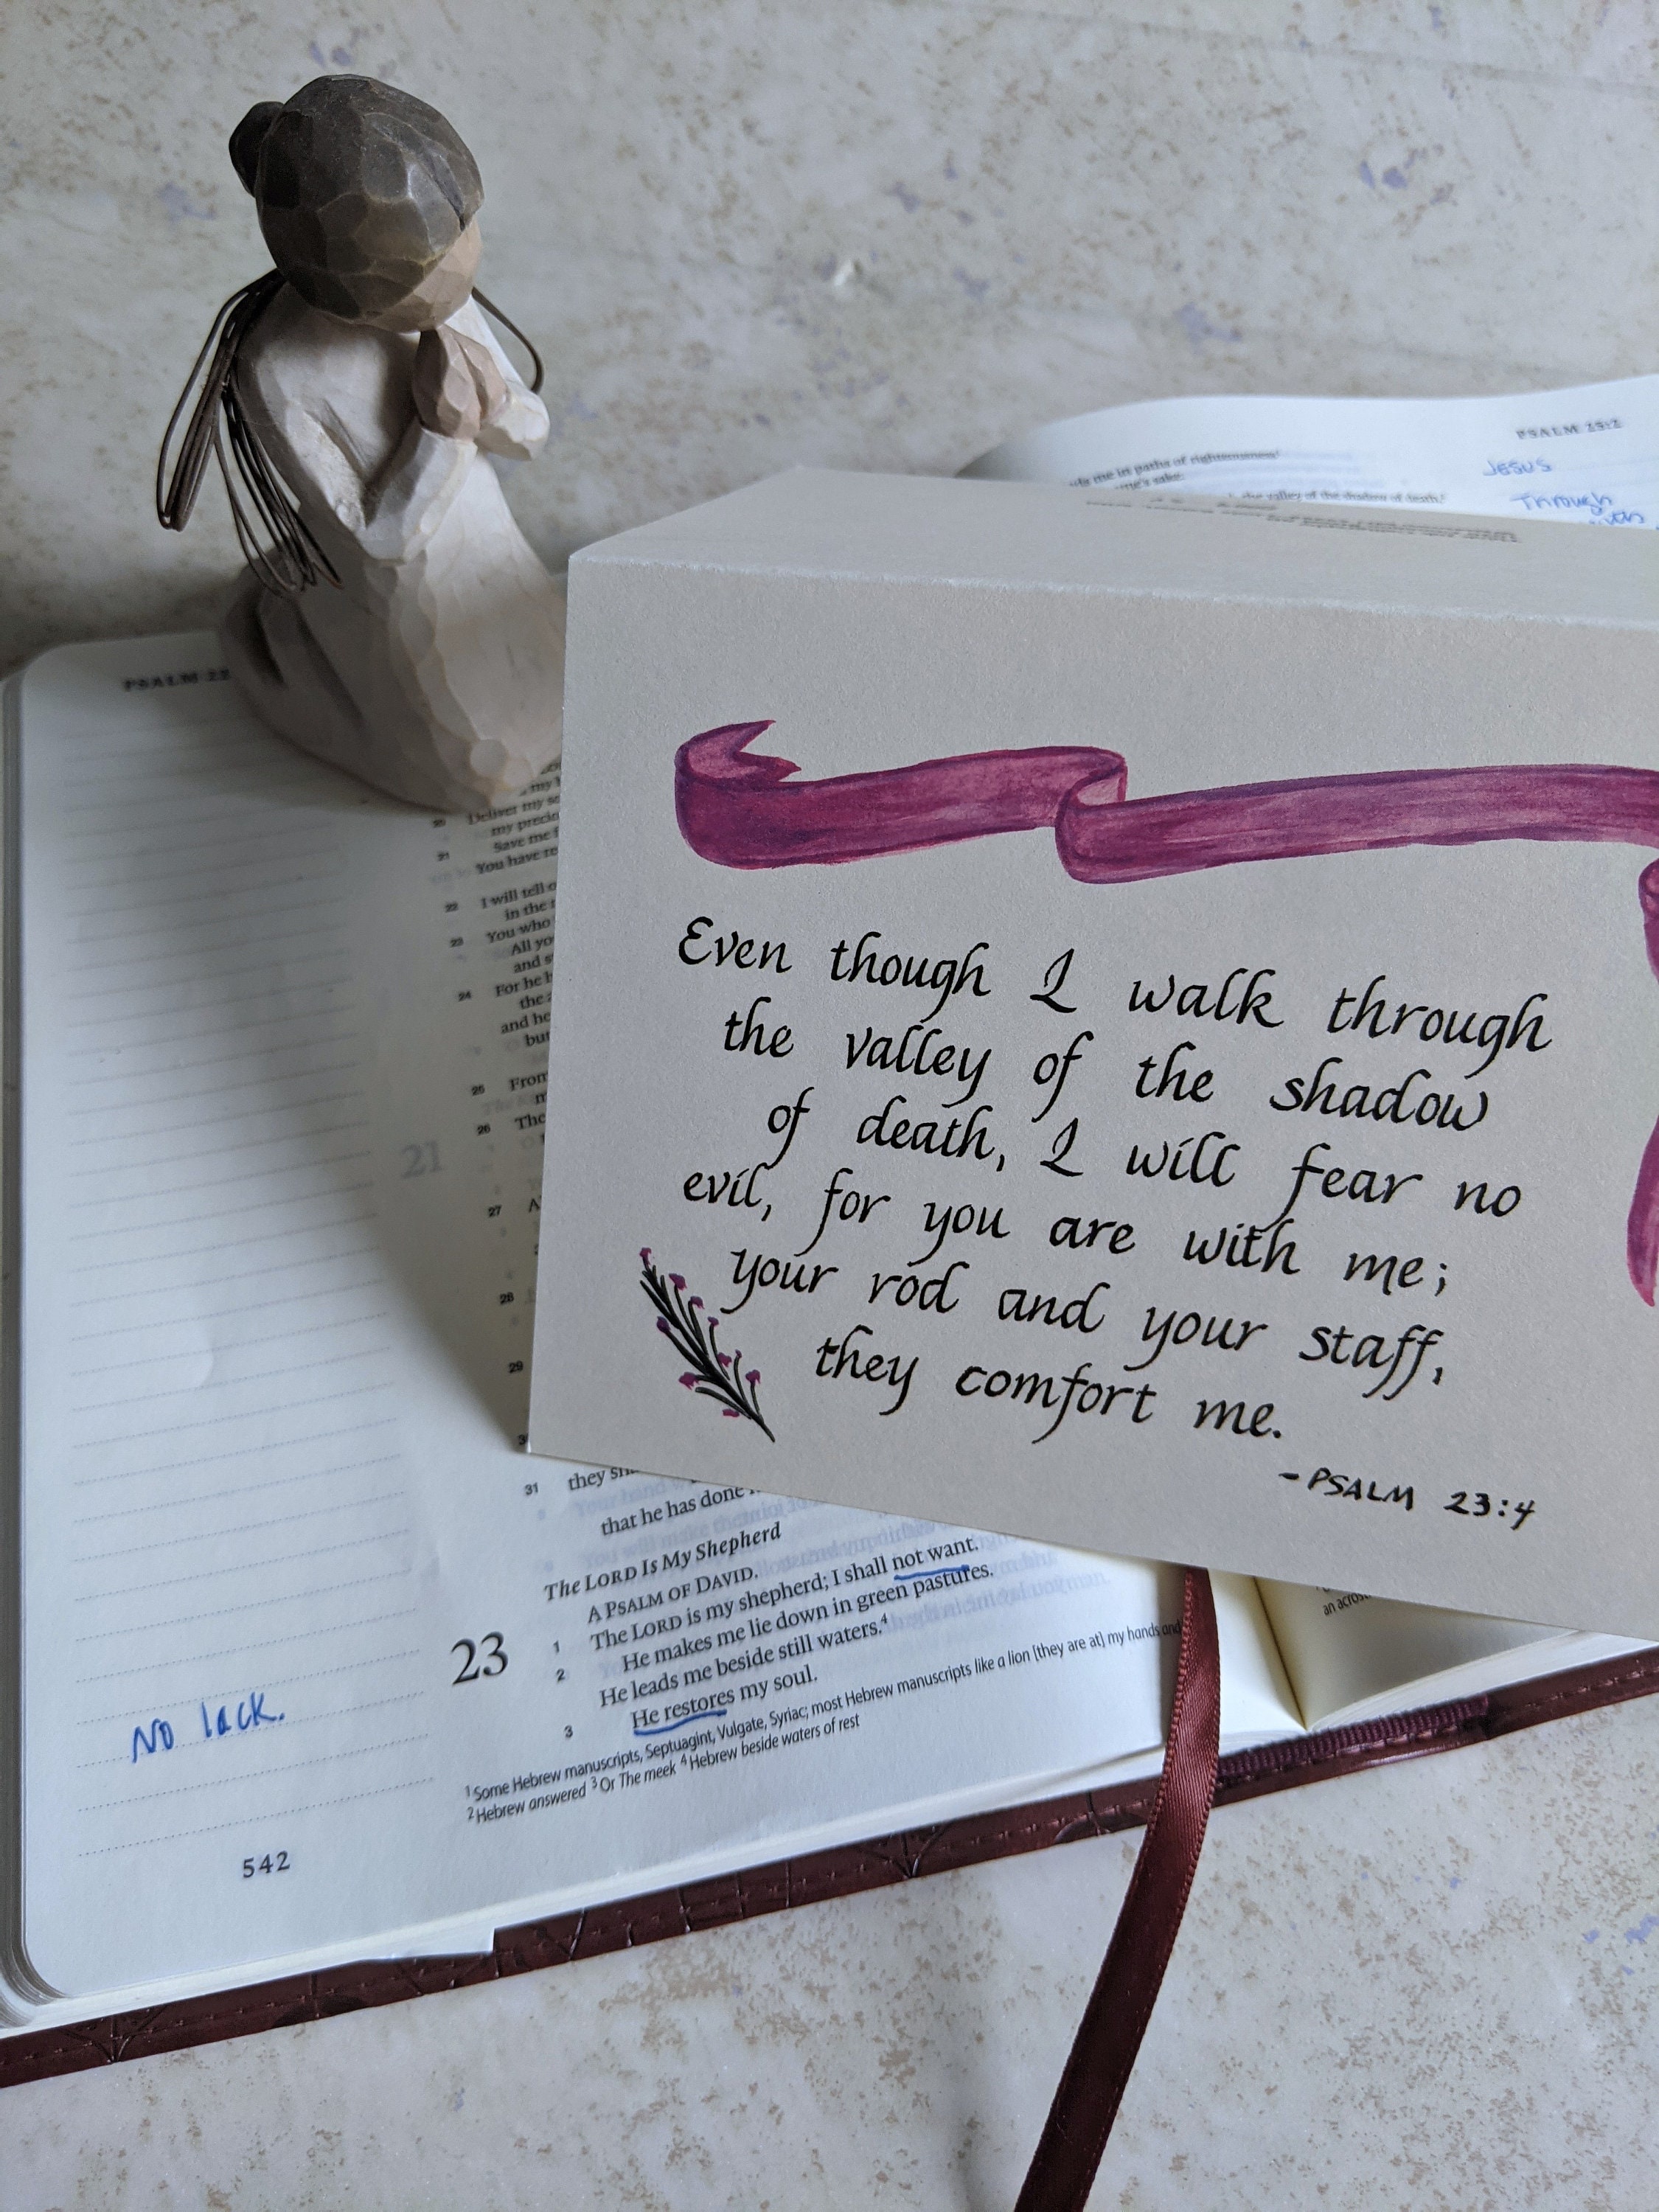 PSALM 22
Deliver my
my precio
Save me
21 You have re
22 I will tell
in the
23 You who
All yo
and
24 For he
the
and he
but
25 From
26 The
21
27 A
28
29
31 they
that he has done
The LORD Is My Shepherd
A PSALM OF DAVID.
23 1 The LORD is my shepherd; I shall not want.
2 He makes me lie down in green pastures.
He leads me beside still waters.4
3 He restores my soul.
1 Some Hebrew manuscripts, Septuagint, Vulgate, Syriac; most Hebrew manuscripts like a lion [they are at] my hands and
2 Hebrew answered 3 Or The meek 4 Hebrew beside waters of rest
No lack.
542
PSALM 23:2
me in paths of righteousness
sake.
the valley of the shadow of death,
JESUS
Through
Even though I walk through
the valley of the shadow
of death, I will fear no
evil, for you are with me;
your rod and your staff,
they comfort me.
-PSALM 23:4
an acros